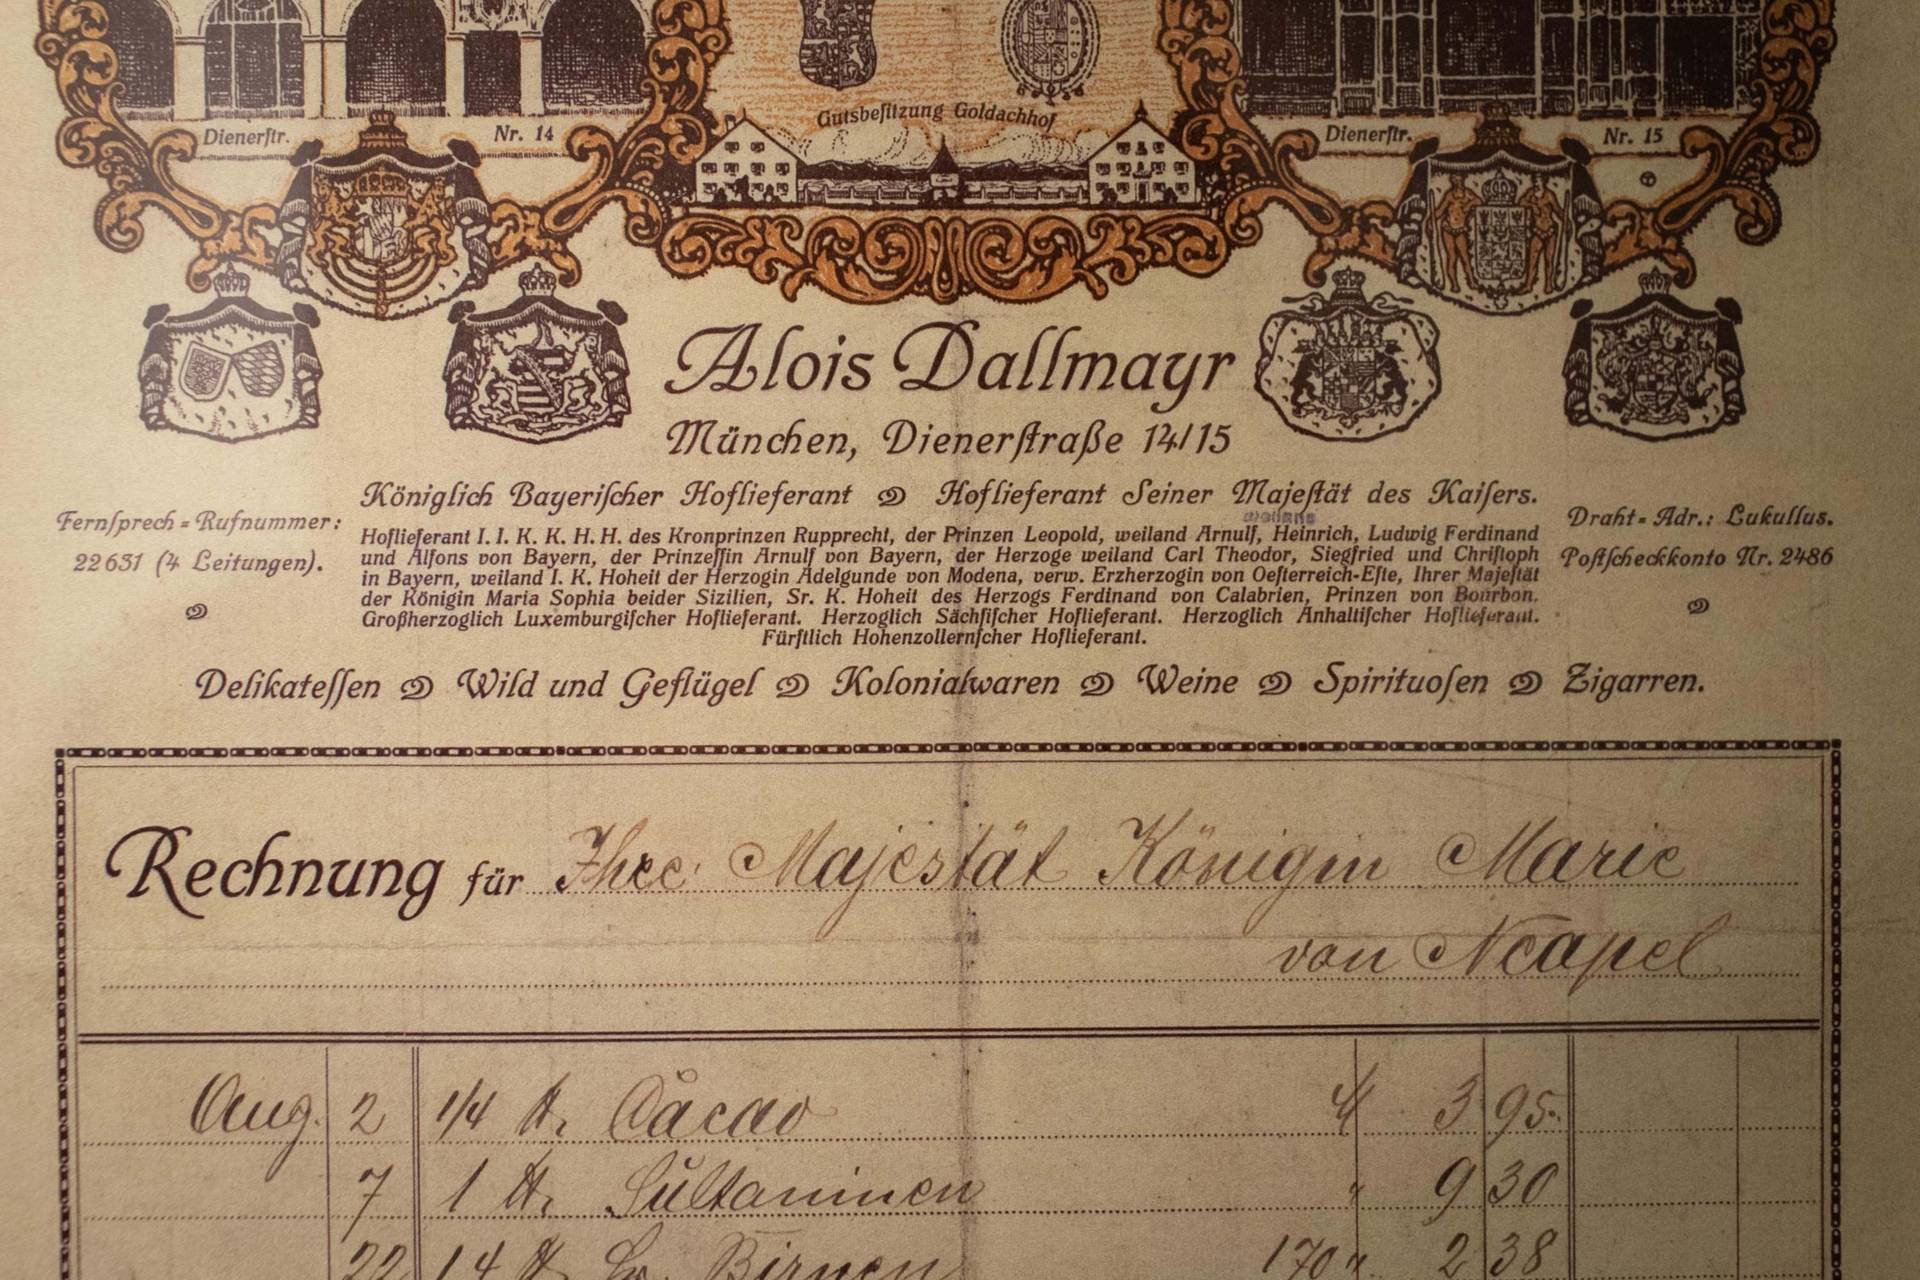 Gutsbeſitzung Goldachhof
Dienerſtr. Nr. 14
Dienerſtr. Nr. 15
Alois Dallmayr
München, Dienerſtraße 14/15
Königlich Bayeriſcher Hoflieferant Hoflieferant Seiner Majeſtät des Kaiſers.
Fernſprech=Rufnummer:
22631 (4 Leitungen).
weiland
Hoflieferant I. I. K. K. H. H. des Kronprinzen Rupprecht, der Prinzen Leopold, weiland Arnulf, Heinrich, Ludwig Ferdinand
und Alfons von Bayern, der Prinzeſſin Arnulf von Bayern, der Herzoge weiland Carl Theodor, Siegfried und Chriſtoph
in Bayern, weiland I. K. Hoheit der Herzogin Adelgunde von Modena, verw. Erzherzogin von Oeſterreich-Eſte, Ihrer Majeſtät
der Königin Maria Sophia beider Sizilien, Sr. K. Hoheit des Herzogs Ferdinand von Calabrien, Prinzen von Bourbon.
Großherzoglich Luxemburgiſcher Hoflieferant. Herzoglich Sächſiſcher Hoflieferant. Herzoglich Anhaltiſcher Hoflieferant.
Fürſtlich Hohenzollernſcher Hoflieferant.
Draht=Adr.: Lukullus.
Poſtſcheckkonto Nr. 2486
Delikateſſen Wild und Geflügel Kolonialwaren Weine Spirituoſen Zigarren.
Rechnung für Ihre Majestät Königin Marie
von Neapel
Aug. 2 1/4 ℔. Cacao 3 95
7 1 ℔. Sultaninen " 9 30
22 14 ℔ Birnen 170 " 2 38